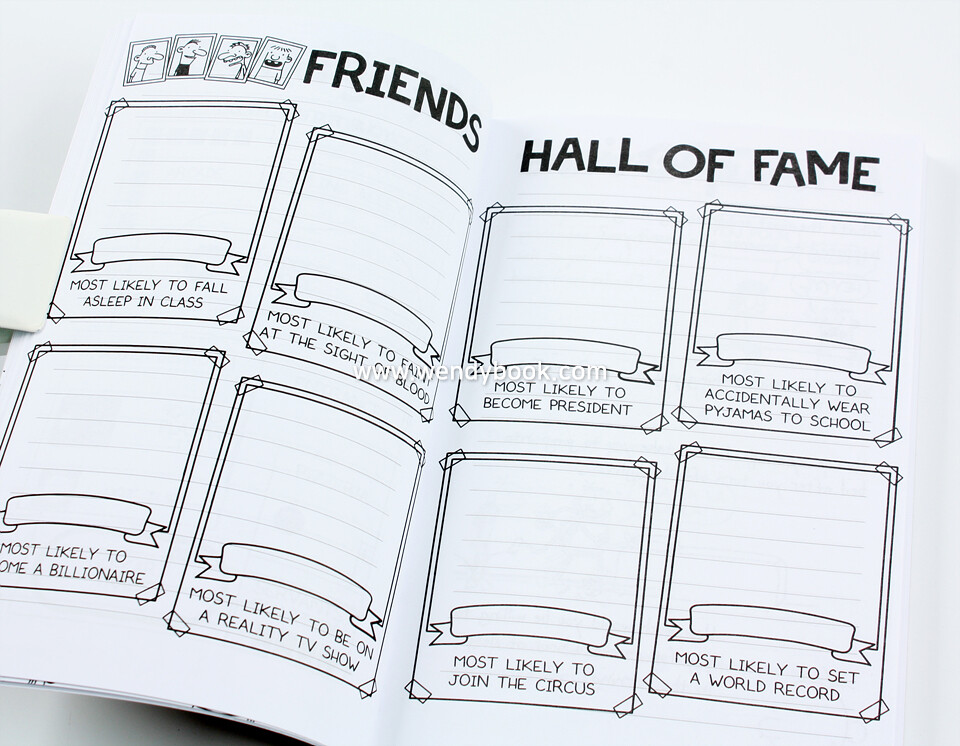 FRIENDS
HALL OF FAME
MOST LIKELY TO FALL
ASLEEP IN CLASS
MOST LIKELY TO FAINT
AT THE SIGHT OF BLOOD
OME A BILLIONAIRE
MOST LIKELY TO
MOST LIKELY TO BE ON
A REALITY TV SHOW
MOST LIKELY TO
BECOME PRESIDENT
MOST LIKELY TO
ACCIDENTALLY WEAR
PYJAMAS TO SCHOOL
MOST LIKELY TO
JOIN THE CIRCUS
MOST LIKELY TO SET
A WORLD RECORD
www.wendybook.com